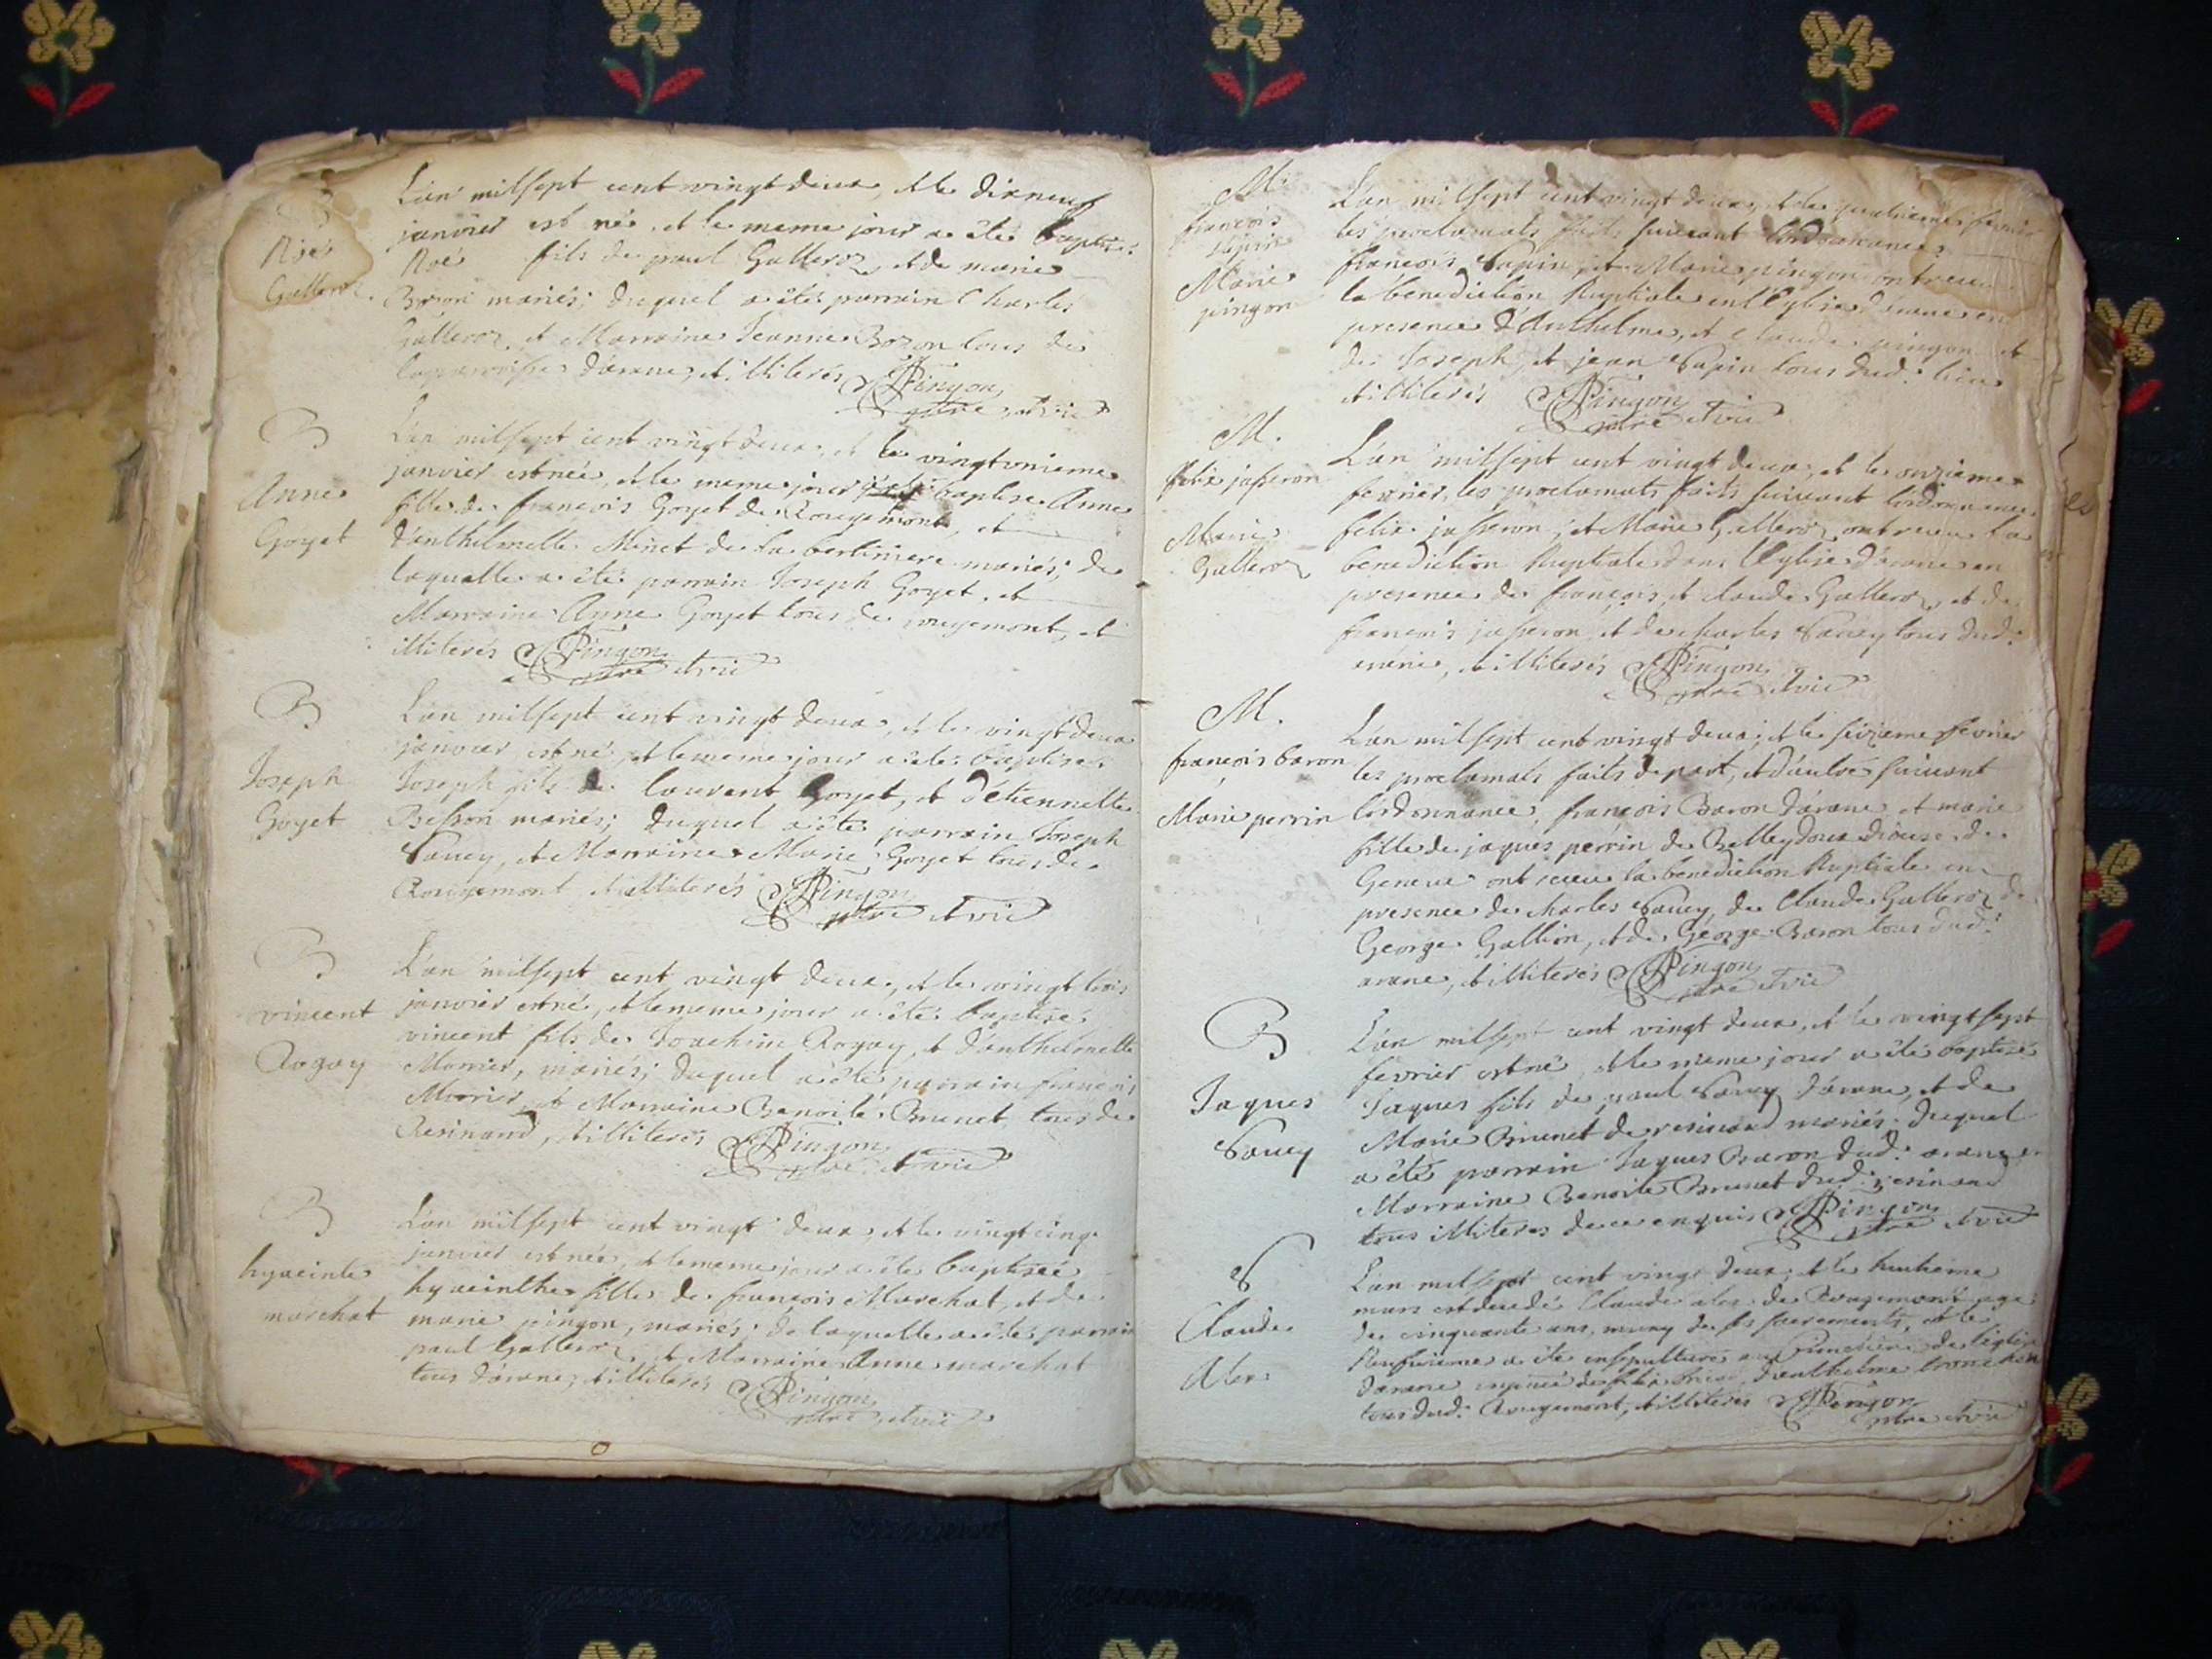 B
Noé
Gallero
L'an milsept cent vingt deux, et le dixneuf
janvier est né, et le meme jour a été baptisé
Noé fils de paul Galleroz, et de marie
Baron mariés; duquel a été parrain Charles
Galleroz, et Marraine Jeanne Bozon tous de
la paroisse d'arane, et illiterés Pingon
ptre et vic
B
Anne
Goyet
L'an milsept cent vingt deux, et le vingtunieme
janvier est née, et le meme jour a été baptisé Anne
fille de francois Goyet de Rougemont, et
d'anthelmette Minet de la bertiniere mariés; de
laquelle a été parrain Joseph Goyet, et
Marraine Anne Goyet tous de rougemont, et
illiterés Pingon
ptre et vic
B
Joseph
Goyet
L'an milsept cent vingt deux, et le vingt deux
janvier est né, et le meme jour a été baptisé
Joseph fils de laurent Goyet, et d'etiennette
Besson mariés; duquel a été parrain Joseph
Savey, et Marraine Marie Goyet tous de
Rougemont et illiterés Pingon
ptre et vic
B
vincent
Rogay
L'an milsept cent vingt deux, et le vingt trois
janvier est né, et le meme jour a été baptisé
vincent fils de Joachim Rogay, et d'anthelmette
Morrier, mariés; duquel a été parrain francois
Morrier, et Marraine Benoite Brunet tous de
Resinand, et illiterés Pingon
ptre et vic
B
hyacinte
marchat
L'an milsept cent vingt deux, et le vingt cinq
janvier est née, et le meme jour a été baptisée
hyacinthe fille de francois Marchat, et de
marie pingon, mariés; de laquelle a été parrain
paul Galleroz, et Marraine Anne marchat
tous d'arane, et illiterés Pingon
ptre et vic
M.
francois
Sapin
Marie
pingon
L'an milsept cent vingt deux, et le fevrier
les proclamats faits suivant l'ordonnance
francois Sapin, et Marie pingon ont receu
la benediction Nuptiale en l'Eglise d'arane en
presence d'Anthelme, et Claude pingon et
de Joseph, et jean Sapin tous dud. lieu
et illiterés Pingon
ptre et vic
M.
felix jasseron
Marie
Galleroz
L'an milsept cent vingt deux, et le onzieme
fevrier, les proclamats faits suivant l'ordonnance
felix jasseron, et Marie Galleroz ont receu la
benediction Nuptiale dans l'Eglise d'arane en
presence de françois, et claude Galleroz, et de
francois jasseron, et de charles Savey tous dud.
arane, et illiterés Pingon
ptre et vic
M.
françois baron
Marie perrin
L'an milsept cent vingt deux; et le seizieme fevrier
les proclamats faits de part, et d'autre suivant
l'ordonnance, françois Baron d'arane et marie
fille de jaques perrin de Belleydoux diocese de
Geneve ont receu la benediction Nuptiale en
presence de charles Savey, de Claude Galleroz, de
George Gallion, et de George Baron tous dud.
arane, et illiterés Pingon
ptre et vic
B
Jaques
Savey
L'an milsept cent vingt deux, et le vingt sept
fevrier est né, et le meme jour a été baptisé
Jaques fils de paul Savey d'arane, et de
Marie Brunet de resinand mariés. duquel
a été parrain Jaques Baron dud. arane et
Marraine Benoite Brunet dud. resinand
tous illiteres de ce enquis Pingon
ptre et vic
S
Claude
Alex
L'an milsept cent vingt deux, et le huitieme
mars est decedé Claude alex de Rougemont agé
de cinquante ans, muny de ses sacrements, et le
Neufvieme a été ensepulturé au Cimetiere de l'eglise
d'arane d'anthelme
tous dud. Rougemont, et illiteres Pingon
ptre et vic